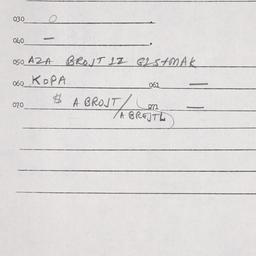 030 O
040 —
050 AZA BROJT 12 GLSTMAK
060 KOPA 061 —
070 $ A BROJT/ 071 —
/A BROJTL